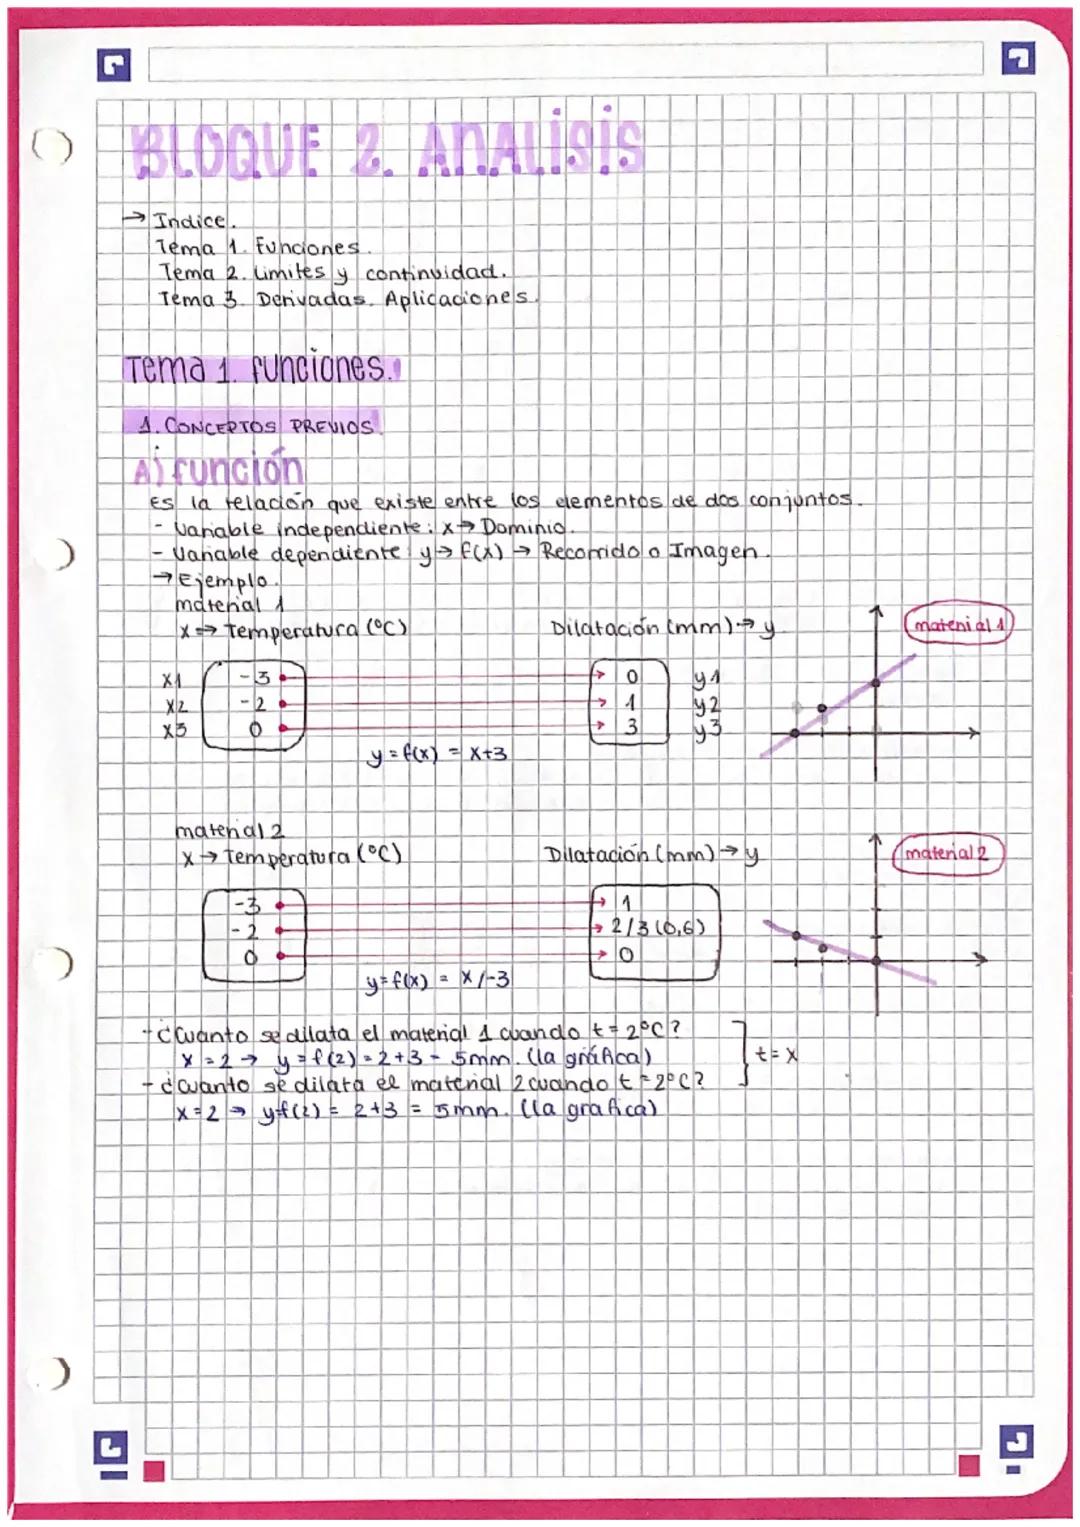 BLOQUE 2. ANALISIS
→ Indice.
Tema 1. Funciones.
Tema 2. Limites y continuidad.
Tema 3. Derivadas. Aplicaciones.
Tema 1. funciones.
1. CONCEPTOS PREVIOS.
A) función
Es la relación que existe entre los elementos de dos conjuntos.
- Variable independiente: x → Dominio.
- Variable dependiente: y → f(x) → Recorrido o Imagen.
→ Ejemplo.
material 1
x → Temperatura (°C) Dilatación (mm) → y material 1
x1 -3 0 y1
x2 -2 1 y2
x3 0 3 y3
y = f(x) = x+3
material 2
x → Temperatura (°C) Dilatación (mm) → y material 2
-3 1
-2 2/3 (0,6)
0 0
y = f(x) = x/-3
- ¿Cuanto se dilata el material 1 cuando t = 2°C?
x = 2 → y = f(2) = 2+3 = 5mm. (la gráfica) t = x
- ¿Cuanto se dilata el material 2 cuando t = 2°C?
x = 2 → y f(2) = 2+3 = 5mm. (la grafica)